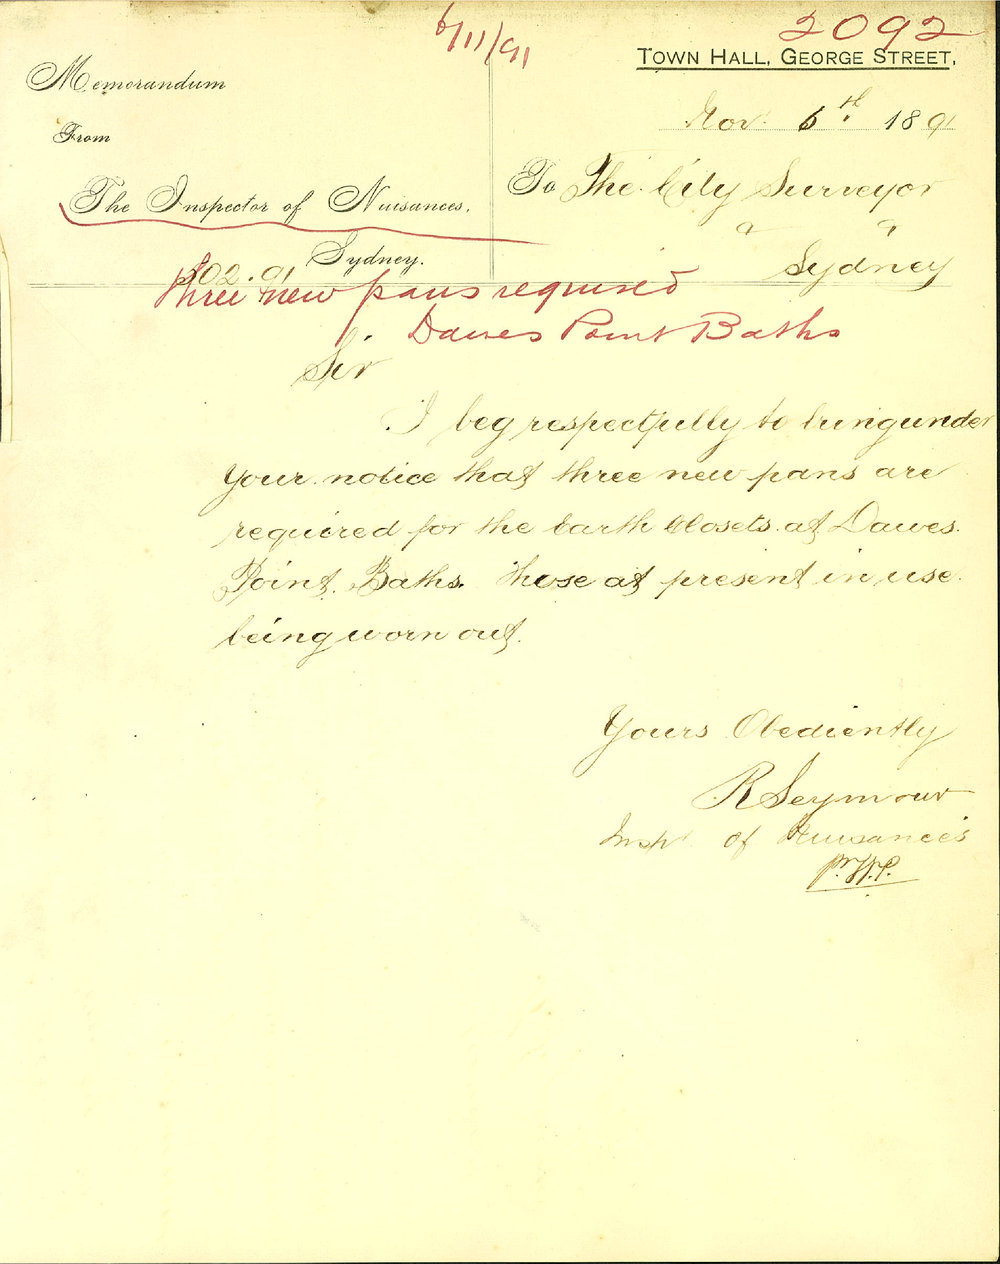 6/11/91
2092
TOWN HALL, GEORGE STREET,
Memorandum
From
The Inspector of Nuisances,
Sydney.
Nov. 6th. 1891
To The City Surveyor
" "
Sydney
302.91
Three new pans required
Dawes Point Baths
Sir
I beg respectfully to bring under
your notice that three new pans are
required for the Earth Closets at Dawes
Point. Baths. those at present in use
being worn out.
Yours Obediently
R Seymour
Inspr of Nuisances
pr W.P.